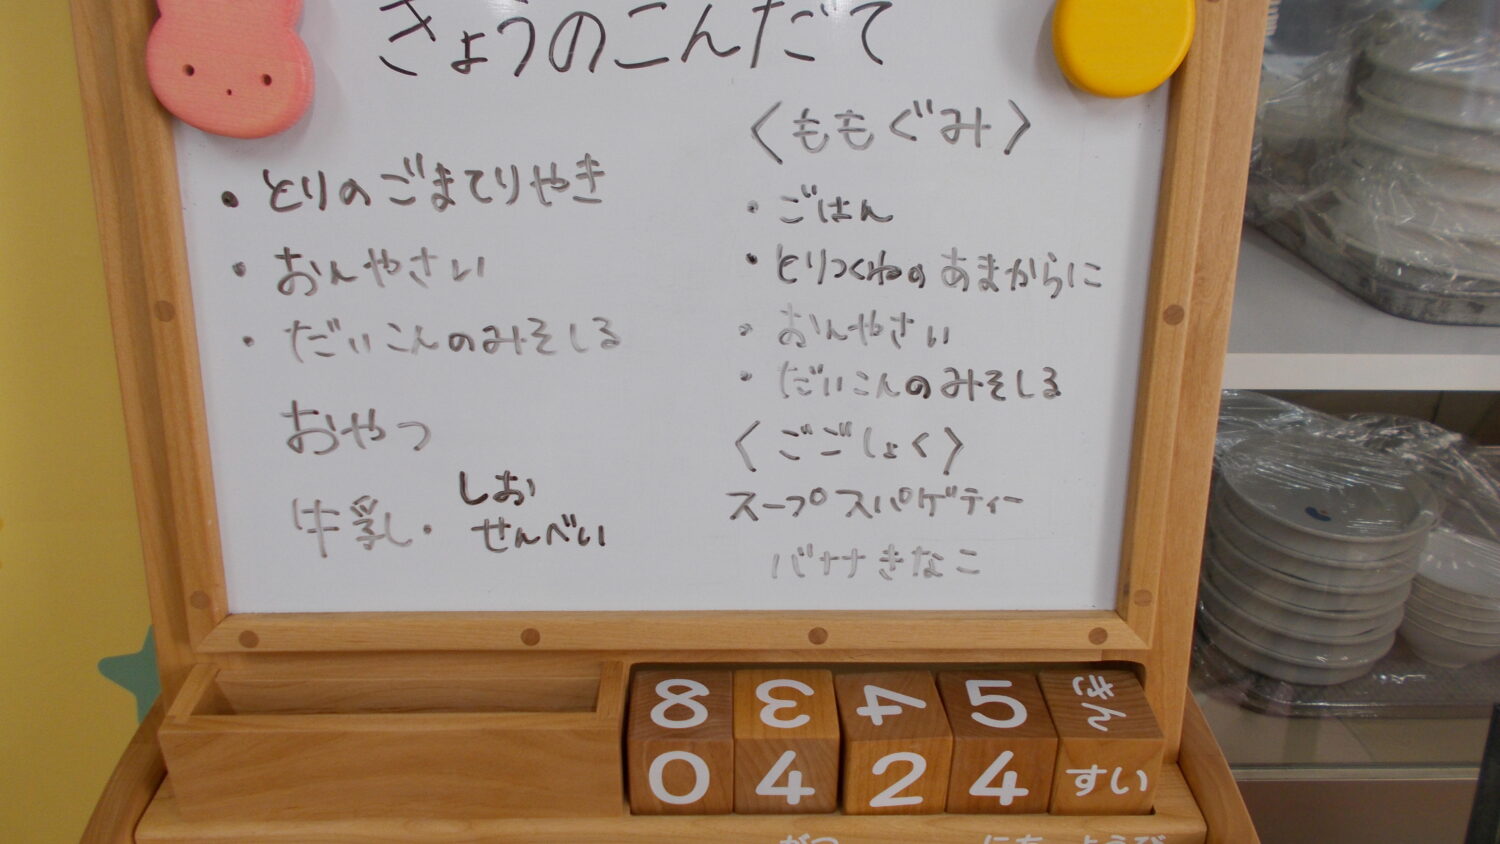 きょうのこんだて
・とりのごまてりやき
・おんやさい
・だいこんのみそしる
おやつ
牛乳し・しお
せんべい
〈ももぐみ〉
・ごはん
・とりつくねのあまからに
・おんやさい
・だいこんのみそしる
〈ごごしょく〉
スープスパゲティー
バナナきなこ
8 3 4 5 きん
0 4 2 4 すい
がつ にち ようび